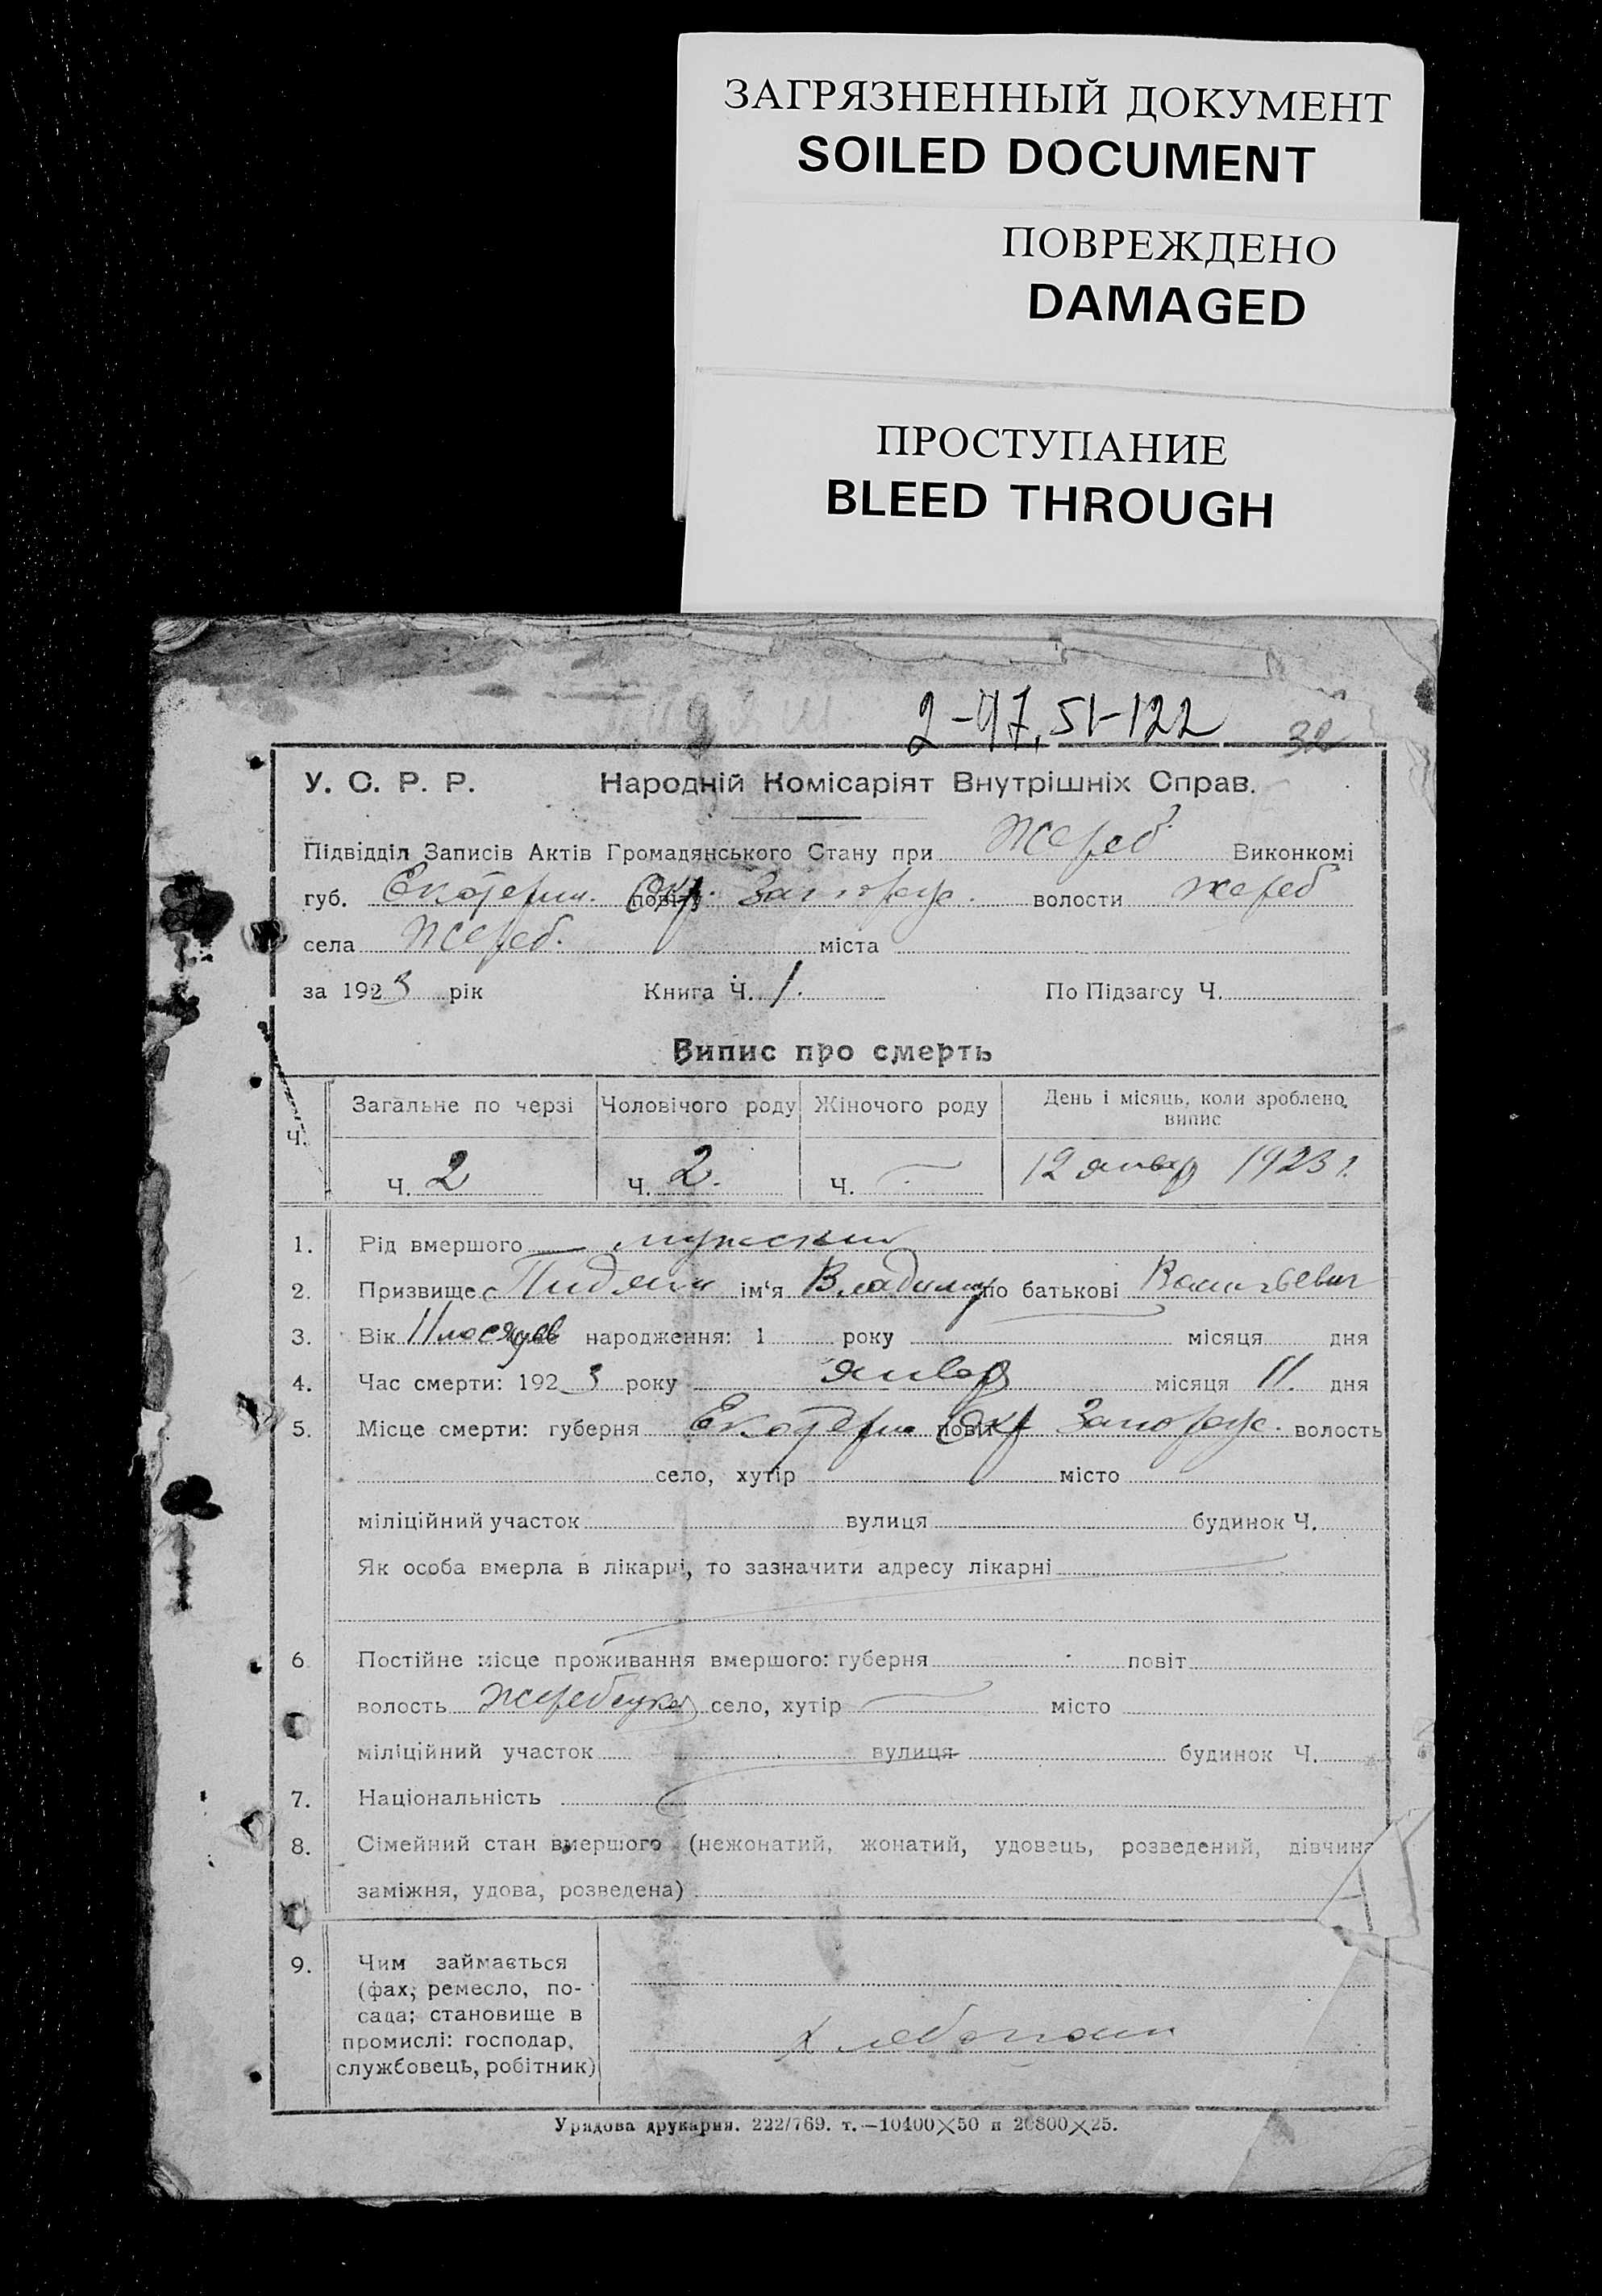 ЗАГРЯЗНЕННЫЙ ДОКУМЕНТ
SOILED DOCUMENT
ПОВРЕЖДЕНО
DAMAGED
ПРОСТУПАНИЕ
BLEED THROUGH
2-47, 51-122 32
У. С. Р. Р. Народній Комісаріят Внутрішніх Справ.
Підвідділ Записів Актів Громадянського Стану при Жереб. Виконкомі
губ. Екатерин. повіту Окр. Запорож. волости Жереб
села Жереб. міста
за 1923 рік Книга Ч. 1. По Підзагсу Ч.
Випис про смерть
Ч. Загальне по черзі Чоловічого роду Жіночого роду День і місяць, коли зроблено випис
Ч. 2 Ч. 2. Ч. — 12 январ 1923 г.
1. Рід вмершого мужский
2. Призвище ім'я Владимир по батькові Васильевич
3. Вік 11 месяцев народження: 1 року місяця дня
4. Час смерти: 1923 року январ місяця 11. дня
5. Місце смерти: губерня Екатерин повіт Окр Запорож. волость
село, хутір місто
міліційний участок вулиця будинок Ч.
Як особа вмерла в лікарні, то зазначити адресу лікарні
6 Постійне місце проживання вмершого: губерня повіт
волость село, хутір — місто
міліційний участок вулиця будинок Ч.
7. Національність
8. Сімейний стан вмершого (нежонатий, жонатий, удовець, розведений, дівчина
заміжня, удова, розведена)
9. Чим займається
(фах; ремесло, по-
сада; становище в
промислі: господар,
службовець, робітник)
хлебопаш
Урядова друкарня. 222/769. т.—10400×50 и 20800×25.